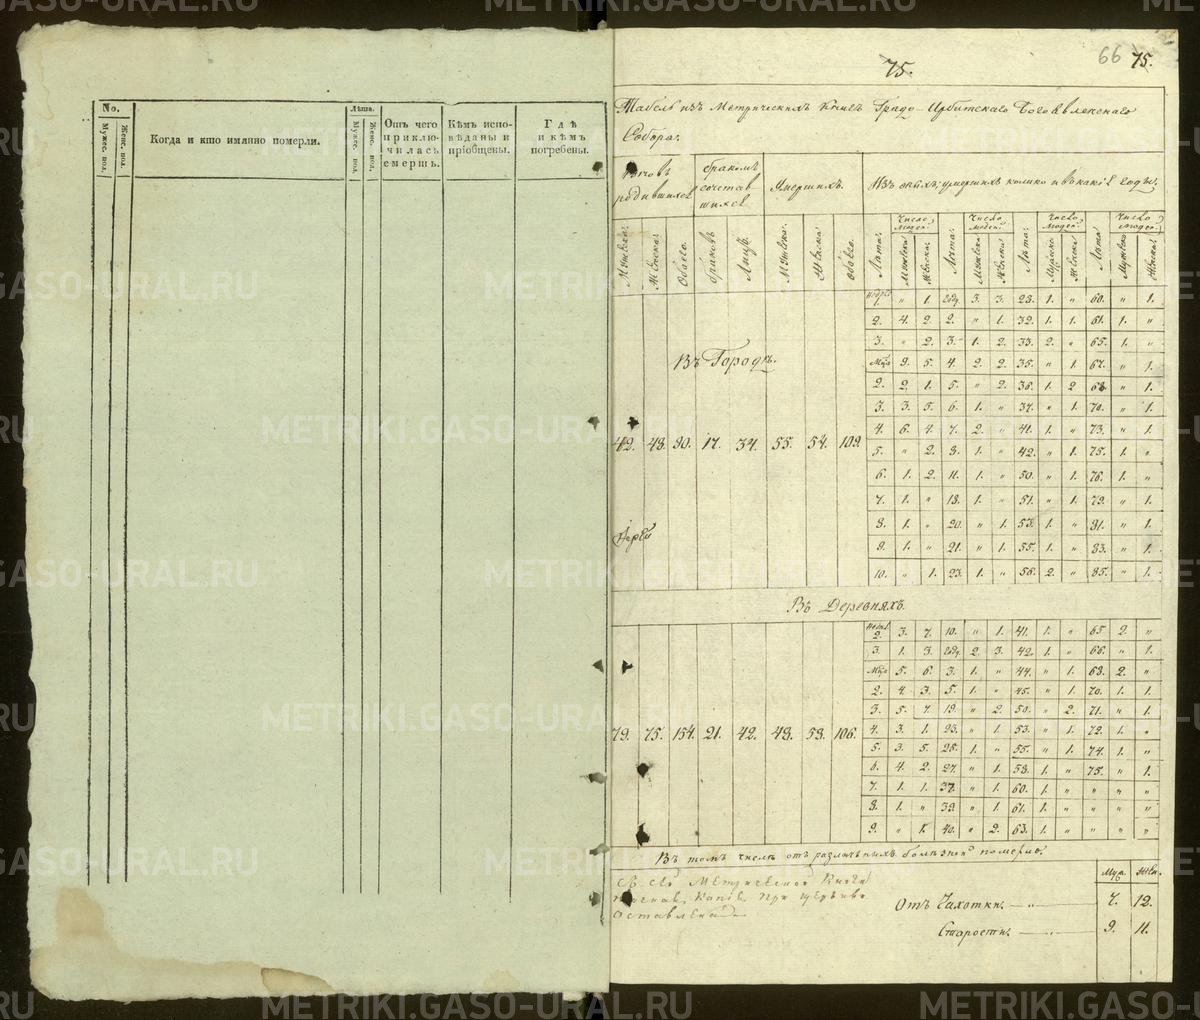 No.
Мужес. пол.
Женс. пол.
Когда и кто имянно померли.
Лѣта.
Мужес. пол.
Женс. пол.
Отъ чего приклю-
чилась
смерть.
Кѣмъ испо-
вѣданы и
пріобщены.
Гдѣ
и кѣмъ
погребены.
66 75.
75.
Табель изъ Метрическихъ Книгъ Градо-Ирбитскаго Богоявленскаго
Собора.
родившихся
бракомъ
сочетав
шихся
Умершихъ.
Изъ оныхъ умершихъ колико и въ какіе годы.
Мужеска.
Женска.
Обоего.
браковъ
Лицъ.
Мужеска.
Женска
Обоего.
Лѣта.
Число людей.
Лѣта.
Число людей.
Лѣта.
Число людей.
Лѣта
Число людей.
1. " 1. году 3. 3. 28. 1. " 60. " 1.
2. 4. 2. 2. " 1. 32. 1. 1. 61. 1. "
3. " 2. 3. 1. 2. 33. 2. " 65. 1. "
Въ Городѣ.
Мца 9. 5. 4. 2. 2. 35. " 1. 67. " 1.
2. 2. 1. 5. " 2. 36. 1. 2 68. " 1.
3. 3. 5. 6. 1. " 37. " 1. 70. " 1.
4. 6. 4. 7. 2. " 41. 1. " 73. " 1.
42. 48. 90. 17. 34. 55. 54. 109.
5. " 2. 8. 1. " 42. " 1. 75. 1. "
6. 1. 2. 11. 1. " 50. " " 76. 1. "
7. 1. " 18. 1. " 51. " 1. 79. " 1.
8. 1. " 20. " 1. 53. 1. " 81. " 1.
9. 1. " 21. " 1. 55. 1. " 83. " 1.
10. " 1. 23. 1. " 56. 2. " 85. " 1.
Въ Деревняхъ.
2. 3. 7. 10. " 1. 41. 1. " 65. 2. "
3. 1. 3. году 2. 3. 42. 1. " 66. " 1.
Мца 5. 6. 3. 1. " 44. " 1. 68. 2. "
2. 4. 3. 5. 1. " 45. " 1. 70. 1. 1.
3. 5. 7. 19. " 2. 50. " 2. 71. " 1.
79. 75. 154. 21. 42. 48. 58. 106.
4. 3. 1. 23. " 1. 53. " 1. 72. 1. "
5. 3. 5. 25. 1. " 55. " 1. 74. 1. "
6. 4. 2. 27. " 1. 58. 1. " 75. " 1.
7. 1. 1. 37. " 1. 60. 1. " " " "
8. 1. " 39. " 1. 61. 1. " " " "
9. " 1. 40. " 2. 63. 1. " " " "
Въ томъ числѣ отъ различныхъ болѣзней померли.
Муж. Жен.
Метрической Книги
Копія при церкви
оставлена
Отъ Чахотки. 7. 12.
Старости. 9. 11.
METRIKI.GASO-URAL.RU